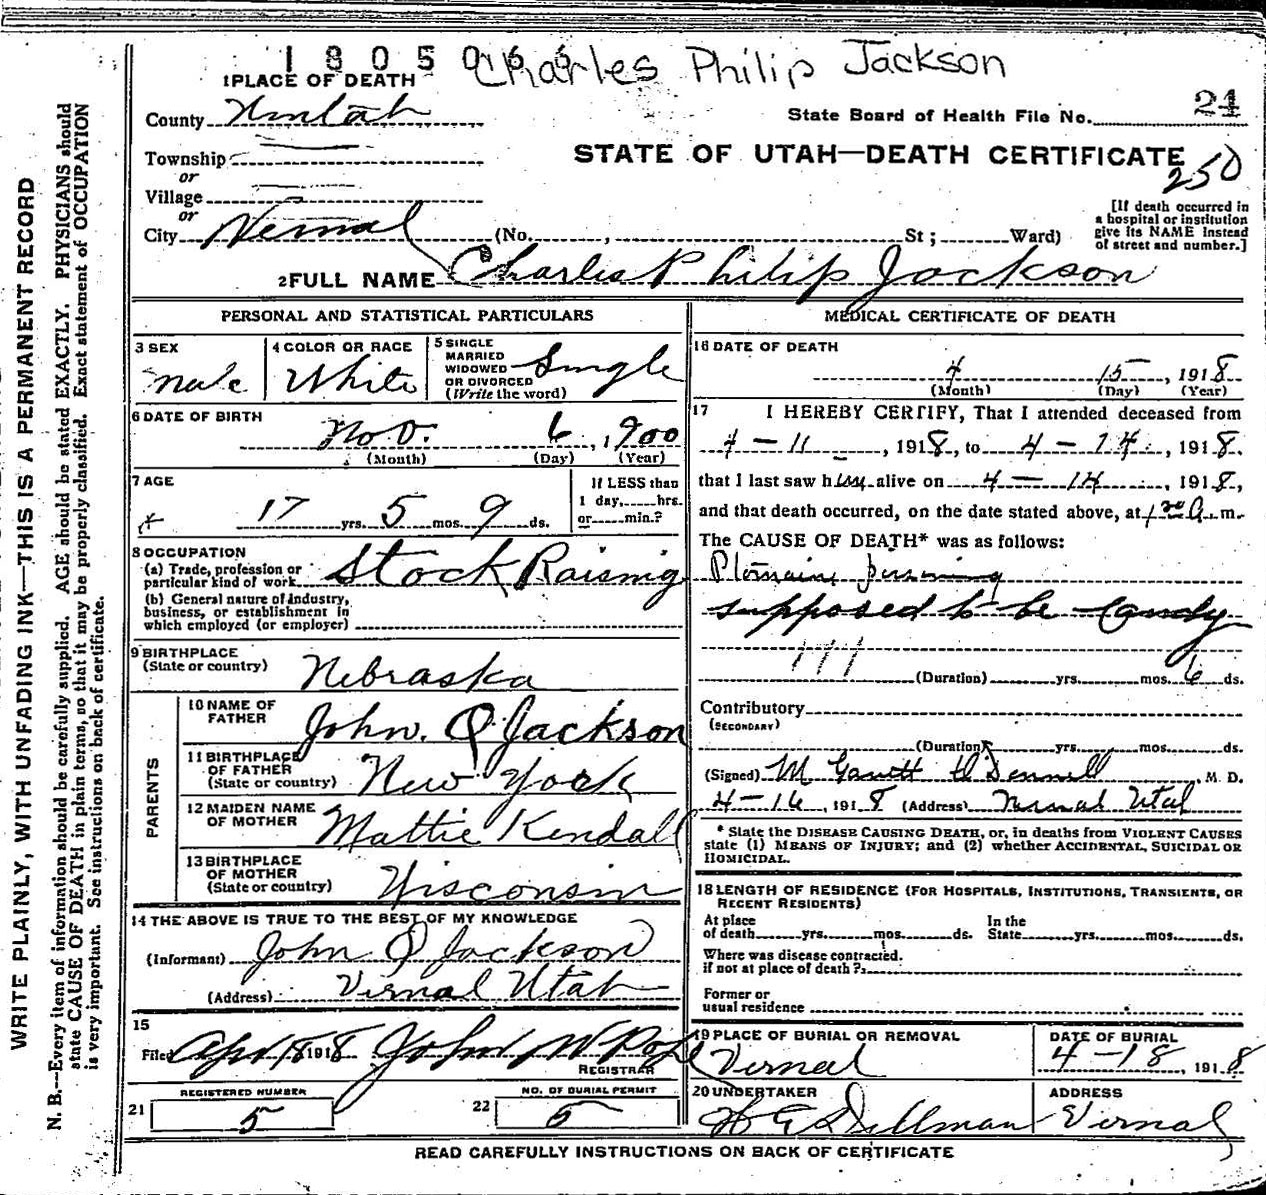 1805066 Charles Philip Jackson
1 PLACE OF DEATH
County Uintah
State Board of Health File No. 24
Township
or
STATE OF UTAH—DEATH CERTIFICATE
250
Village
or
City Vernal (No. , St ; Ward)
[If death occurred in
a hospital or institution
give its NAME instead
of street and number.]
2 FULL NAME Charles Philip Jackson
PERSONAL AND STATISTICAL PARTICULARS
3 SEX
male
4 COLOR OR RACE
White
5 SINGLE
MARRIED
WIDOWED
OR DIVORCED
(Write the word)
Single
6 DATE OF BIRTH
Nov. 6, 1900
(Month) (Day) (Year)
7 AGE
17 yrs. 5 mos. 9 ds.
If LESS than
1 day, hrs.
or min.?
8 OCCUPATION
(a) Trade, profession or
particular kind of work Stock Raising
(b) General nature of Industry,
business, or establishment in
which employed (or employer)
9 BIRTHPLACE
(State or country) Nebraska
PARENTS
10 NAME OF
FATHER John. Q Jackson
11 BIRTHPLACE
OF FATHER
(State or country) New York
12 MAIDEN NAME
OF MOTHER Mattie Kendall
13 BIRTHPLACE
OF MOTHER
(State or country) Wisconsin
14 THE ABOVE IS TRUE TO THE BEST OF MY KNOWLEDGE
(Informant) John Q Jackson
(Address) Vernal Utah
15
Filed Apr 18 1918 John W Pope
REGISTRAR
REGISTERED NUMBER
21 5
NO. OF BURIAL PERMIT
22 5
MEDICAL CERTIFICATE OF DEATH
16 DATE OF DEATH
4 15, 1918
(Month) (Day) (Year)
17 I HEREBY CERTIFY, That I attended deceased from
4 - 11, 1918, to 4 - 14, 1918.
that I last saw him alive on 4 - 14, 1918,
and that death occurred, on the date stated above, at A.m.
The CAUSE OF DEATH* was as follows:
Ptomaine poisoning
supposed to be Candy
(Duration) yrs. mos. 6 ds.
Contributory
(SECONDARY)
(Duration) yrs. mos. ds.
(Signed) M. D.
4-16, 1918 (Address) Vernal Utah
* State the DISEASE CAUSING DEATH, or, in deaths from VIOLENT CAUSES
state (1) MEANS OF INJURY; and (2) whether ACCIDENTAL, SUICIDAL OR
HOMICIDAL.
18 LENGTH OF RESIDENCE (FOR HOSPITALS, INSTITUTIONS, TRANSIENTS, OR
RECENT RESIDENTS)
At place
of death yrs. mos. ds.
In the
State yrs. mos. ds.
Where was disease contracted.
if not at place of death?
Former or
usual residence
19 PLACE OF BURIAL OR REMOVAL
Vernal
DATE OF BURIAL
4-18, 1918
20 UNDERTAKER
Dillman
ADDRESS
Vernal
READ CAREFULLY INSTRUCTIONS ON BACK OF CERTIFICATE
WRITE PLAINLY, WITH UNFADING INK—THIS IS A PERMANENT RECORD
N. B.—Every item of information should be carefully supplied. AGE should be stated EXACTLY. PHYSICIANS should
state CAUSE OF DEATH in plain terms, so that it may be properly classified. Exact statement of OCCUPATION
is very important. See instructions on back of certificate.